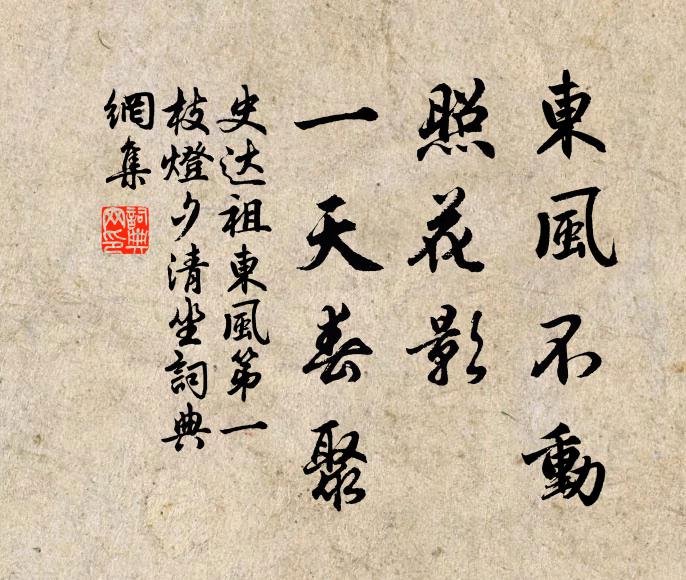 東風不動
照花影
一天春聚
史达祖東風第一
枝燈夕清坐詞典
網集
詞典
网印